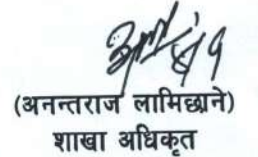 (अनन्तराज लामिछाने)
शाखा अधिकृत